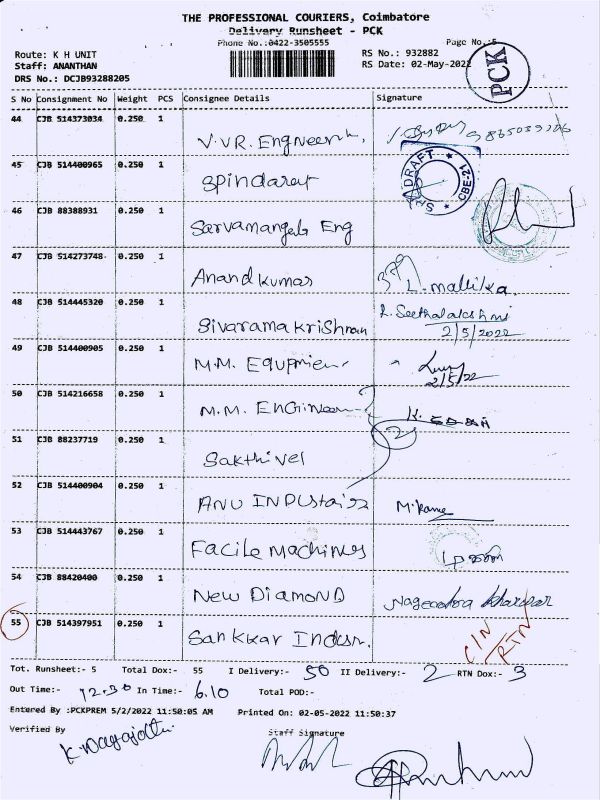 THE PROFESSIONAL COURIERS, Coimbatore
Delivery Runsheet - PCK
Phone No.:0422-3505555 Page No.:5
Route: K H UNIT RS No.: 932882
Staff: ANANTHAN RS Date: 02-May-2022
DRS No.: DCJB93288205
PCK
S No Consignment No Weight PCS Consignee Details Signature
44 CJB 514373034 0.250 1
V.VR. Engneerik,
45 CJB 514400965 0.250 1
Spindarat
CBE-21
46 CJB 88388931 0.250 1
Sarvamangala Eng
47 CJB 514273748 0.250 1
Anandkumar L. mallika.
48 CJB 514445320 0.250 1
Sivaramakrishnan L. Seethalakshmi
2/5/2022
49 CJB 514400905 0.250 1
M.M. Equpmien 2/5/22
50 CJB 514216658 0.250 1
M.M. Engineer K.
2
51 CJB 88237719 0.250 1
Sakthivel
52 CJB 514400904 0.250 1
ANU INDUstais M.
53 CJB 514443767 0.250 1
Facile machines
54 CJB 88420400 0.250 1
New DIAMOND Nagendra
55 CJB 514397951 0.250 1
Sankkar Indusr. C/N
RTN
Tot. Runsheet:- 5 Total Dox:- 55 I Delivery:- 50 II Delivery:- 2 RTN Dox:- 3
Out Time:- 12.30 In Time:- 6.10 Total POD:-
Entered By :PCKPREM 5/2/2022 11:50:05 AM Printed On: 02-05-2022 11:50:37
Verified By Staff Signature